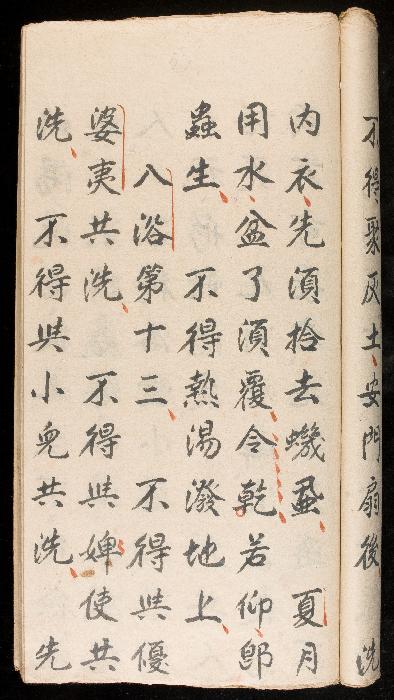 不得聚灰土安門扇後　洗
内衣先須拾去蟣虱　夏月
用水盆了須覆令乾若仰即
蟲生　不得熱湯潑地上
入浴第十三　不得與優
婆夷共洗　不得與婢使共
洗　不得與小兒共洗　先